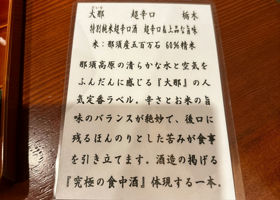 だいな
大那 超辛口 栃木
特別純米超辛口酒 超辛口&上品な旨味
米:那須産五百万石 60%精米
那須高原の清らかな水と空気を
ふんだんに感じる『大那』の人
気定番ラベル。辛さとお米の旨
味のバランスが絶妙で、後口に
残るほんのりとした苦みが食事
を引き立てます。酒造の掲げる
『究極の食中酒』体現する一本。